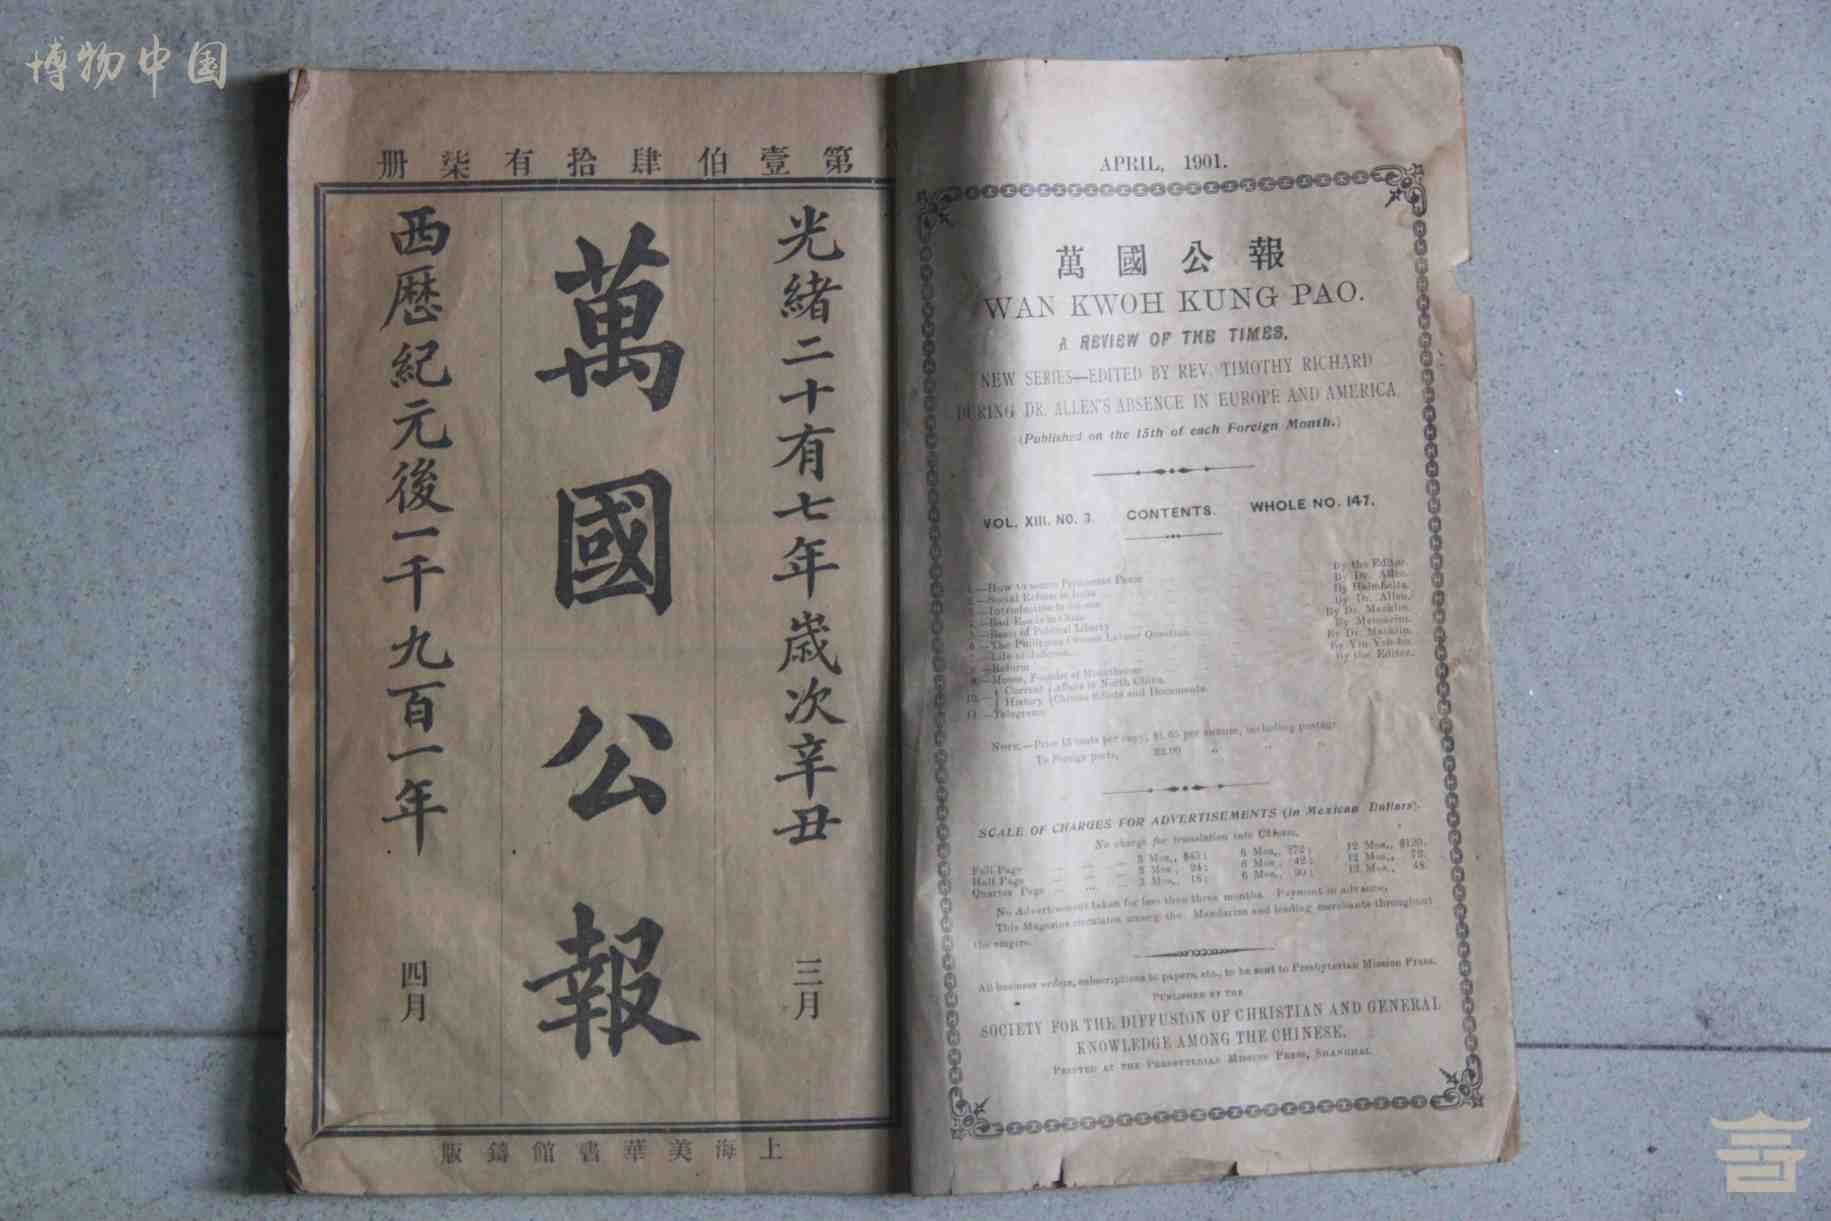 博物中国
第壹伯肆拾有柒册
光緒二十有七年歲次辛丑
三月
萬國公報
西曆紀元後一千九百一年
四月
上海美華書館鑄版
APRIL, 1901.
萬國公報
WAN KWOH KUNG PAO.
A REVIEW OF THE TIMES.
NEW SERIES—EDITED BY REV. TIMOTHY RICHARD
DURING DR. ALLEN'S ABSENCE IN EUROPE AND AMERICA
(Published on the 15th of each Foreign Month.)
VOL. XIII. NO. 3. CONTENTS. WHOLE NO. 147.
1.—How to secure Permanent Peace By the Editor.
2.—Social Reform in India By Dr. Allen.
3.—Introduction to Science By Helmholtz.
By Dr. Allen.
5.—Basis of Political Liberty By Dr. Macklin.
6.—The Philippine Chinese Labour Question
7.—Life of By Dr. Macklin.
8.—Reform
9.—Moses, Founder of Monotheism By the Editor.
10.— Current Affairs in North China.
History Chinese Edicts and Documents.
11.—Telegrams
NOTE.—Price 15 cents per copy; $1.65 per annum, including postage
To Foreign ports, $2.00 " " "
SCALE OF CHARGES FOR ADVERTISEMENTS (in Mexican Dollars).
No charge for translation into Chinese.
Full Page ... 3 Mon., $43; 6 Mon., $72; 12 Mon., $120.
Half Page ... 3 Mon., 24; 6 Mon., 42; 12 Mon., 72.
Quarter Page ... 3 Mon., 18; 6 Mon., 30; 12 Mon., 48.
No Advertisement taken for less than three months. Payment in advance.
This Magazine circulates among the Mandarins and leading merchants throughout
the empire.
All business orders, subscriptions to papers, etc., to be sent to Presbyterian Mission Press.
PUBLISHED BY THE
SOCIETY FOR THE DIFFUSION OF CHRISTIAN AND GENERAL
KNOWLEDGE AMONG THE CHINESE.
PRINTED AT THE PRESBYTERIAN MISSION PRESS, SHANGHAI.